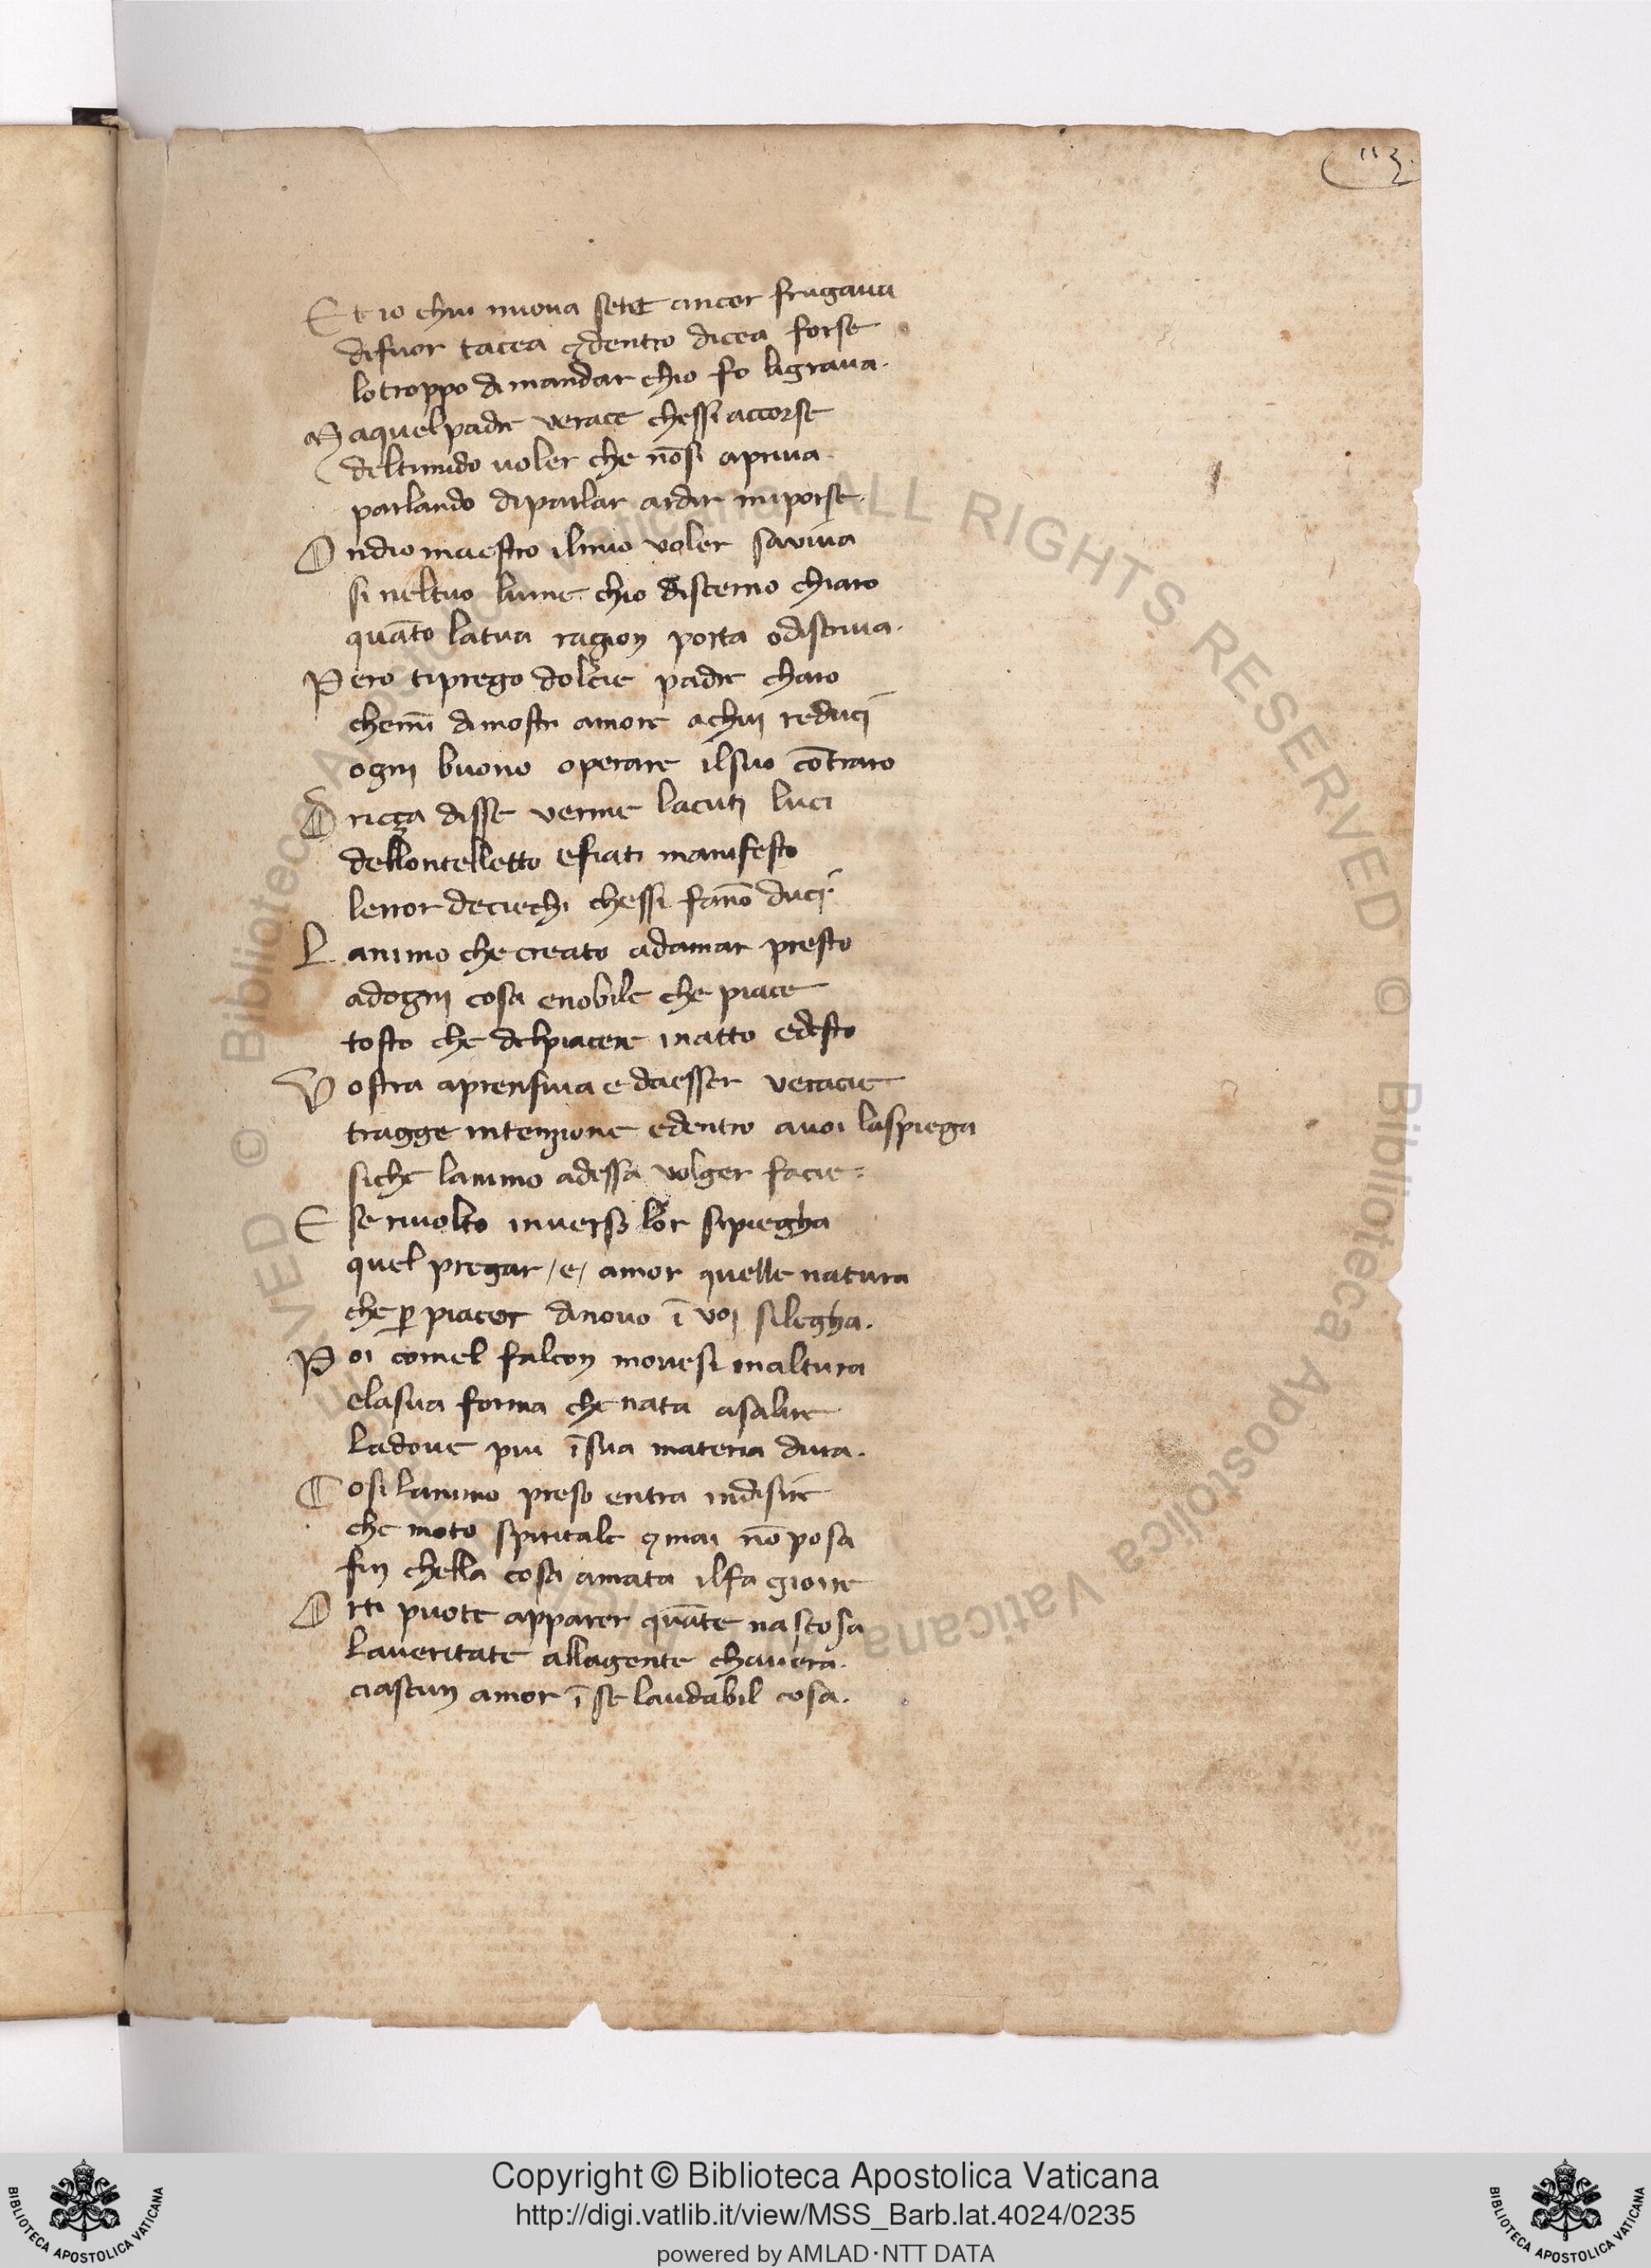 113
Et io chui nuova sete ancor frugava
difuor tacea ⁊dentro dicea forse
lotroppo dimandar chio fo ligrava.
Maquel padre verace chessi accorse
deltimido voler che nōsi apriva.
parlando diparlar ardir miporse.
Ondio maestro ilmio voler saviva
si neltuo lume chio discerno chiaro
quāto latua ragion porta odiscriva.
Pero tiprego dolcie padre charo
chemī dimostri amore achui reduci
ogni buono operare ilsuo cōtraro
Driçça disse verme lacuti luci
dellontelletto efiati manifesto
lerror deciechi chessi fāno duci.
Lanimo che creato adamar presto
adogni cosa enobile che piace
tosto che delpiacere inatto edesto
Vostra aprensiva e daesser veracie
tragge intenzione edentro avoi laspiega
siche lanimo adessa volger facie.
E se rivolto inverso lor sipiegha
quel pregar /e/ amor quelle natura
che ꝑ piacer dinovo ī voi silegha.
Poi comel falcon movesi inaltura
elasua forma che nata asalire
ladove piu īsua materia dura.
Cosi lanimo preso entra indisire
che moto spiritale ⁊ mai nō posa
fin chella cosa amata ilfa gioire
Orti puote apparer quāte nascosa
laveritate allagente chavera.
ciascun amor ī se laudabil cosa.
© Biblioteca Apostolica Vaticana ALL RIGHTS RESERVED
© Biblioteca Apostolica Vaticana ALL RIGHTS RESERVED
Copyright © Biblioteca Apostolica Vaticana
http://digi.vatlib.it/view/MSS_Barb.lat.4024/0235
powered by AMLAD·NTT DATA
BIBLIOTECA APOSTOLICA VATICANA
BIBLIOTECA APOSTOLICA VATICANA